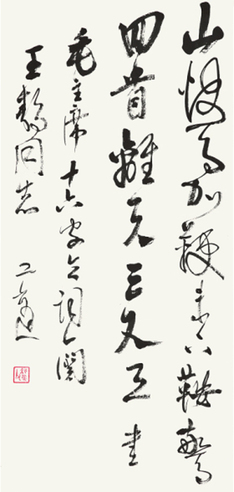 山快馬加鞭未下鞍驚
回首離天三尺三 書
毛主席十六字令詞一闋
王 同志